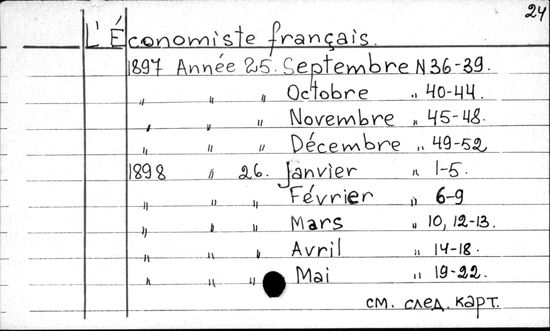 24
L'Économiste français.
1897 Année 25. Septembre N 36-39.
„ „ „ Octobre „ 40-44.
„ „ „ Novembre „ 45-48.
„ „ „ Décembre „ 49-52
1898 „ 26. Janvier „ 1-5.
„ „ „ Février „ 6-9
„ „ „ Mars „ 10, 12-13.
„ „ „ Avril „ 14-18.
„ „ „ Mai „ 19-22.
см. след. карт.